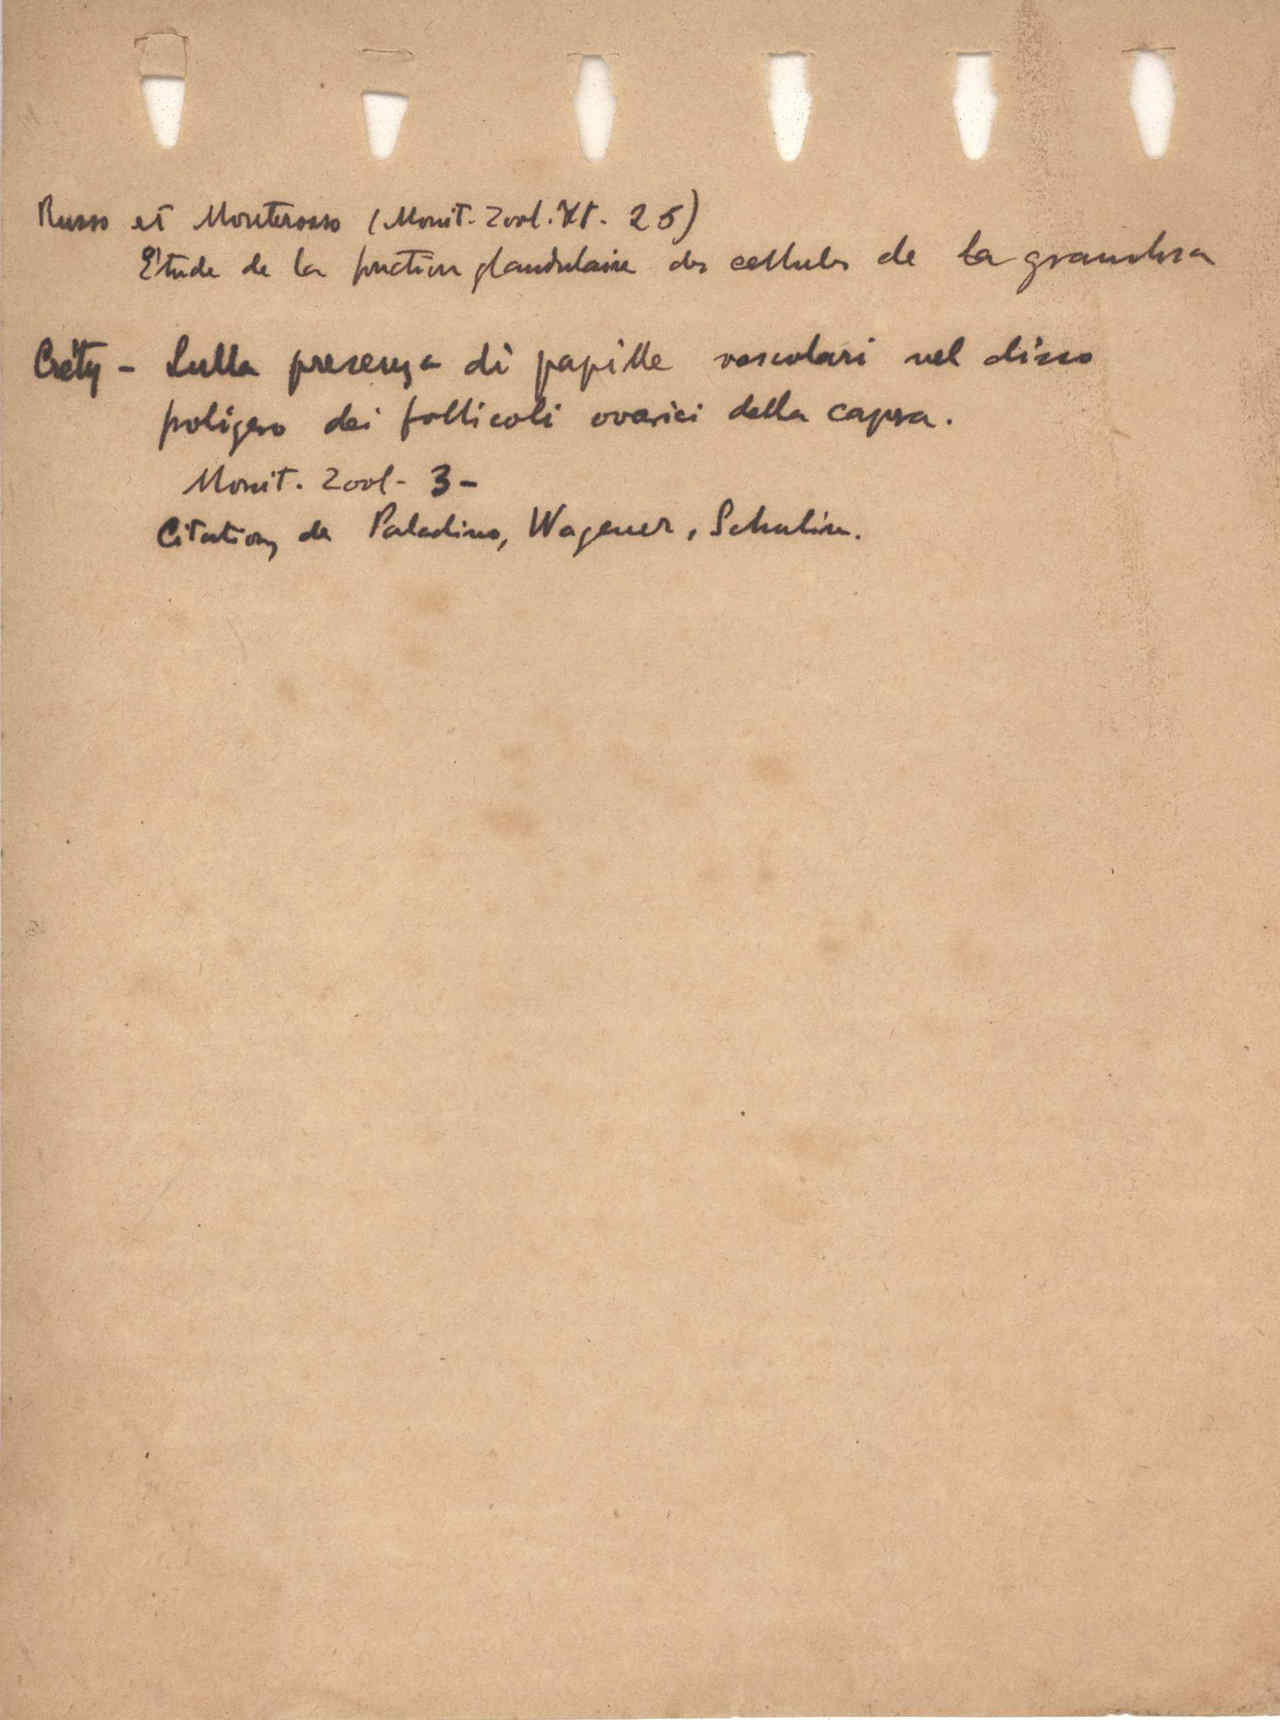 Russo et Monterosso (Monit. Zool. It. 25)
Etude de la fonction glandulaire des cellules de la granulosa
Créty - Sulla presenza di papille vascolari nel disco
poligero dei follicoli ovarici della capra.
Monit. Zool - 3 -
Citations de Paladino, Wagener, Schulin.